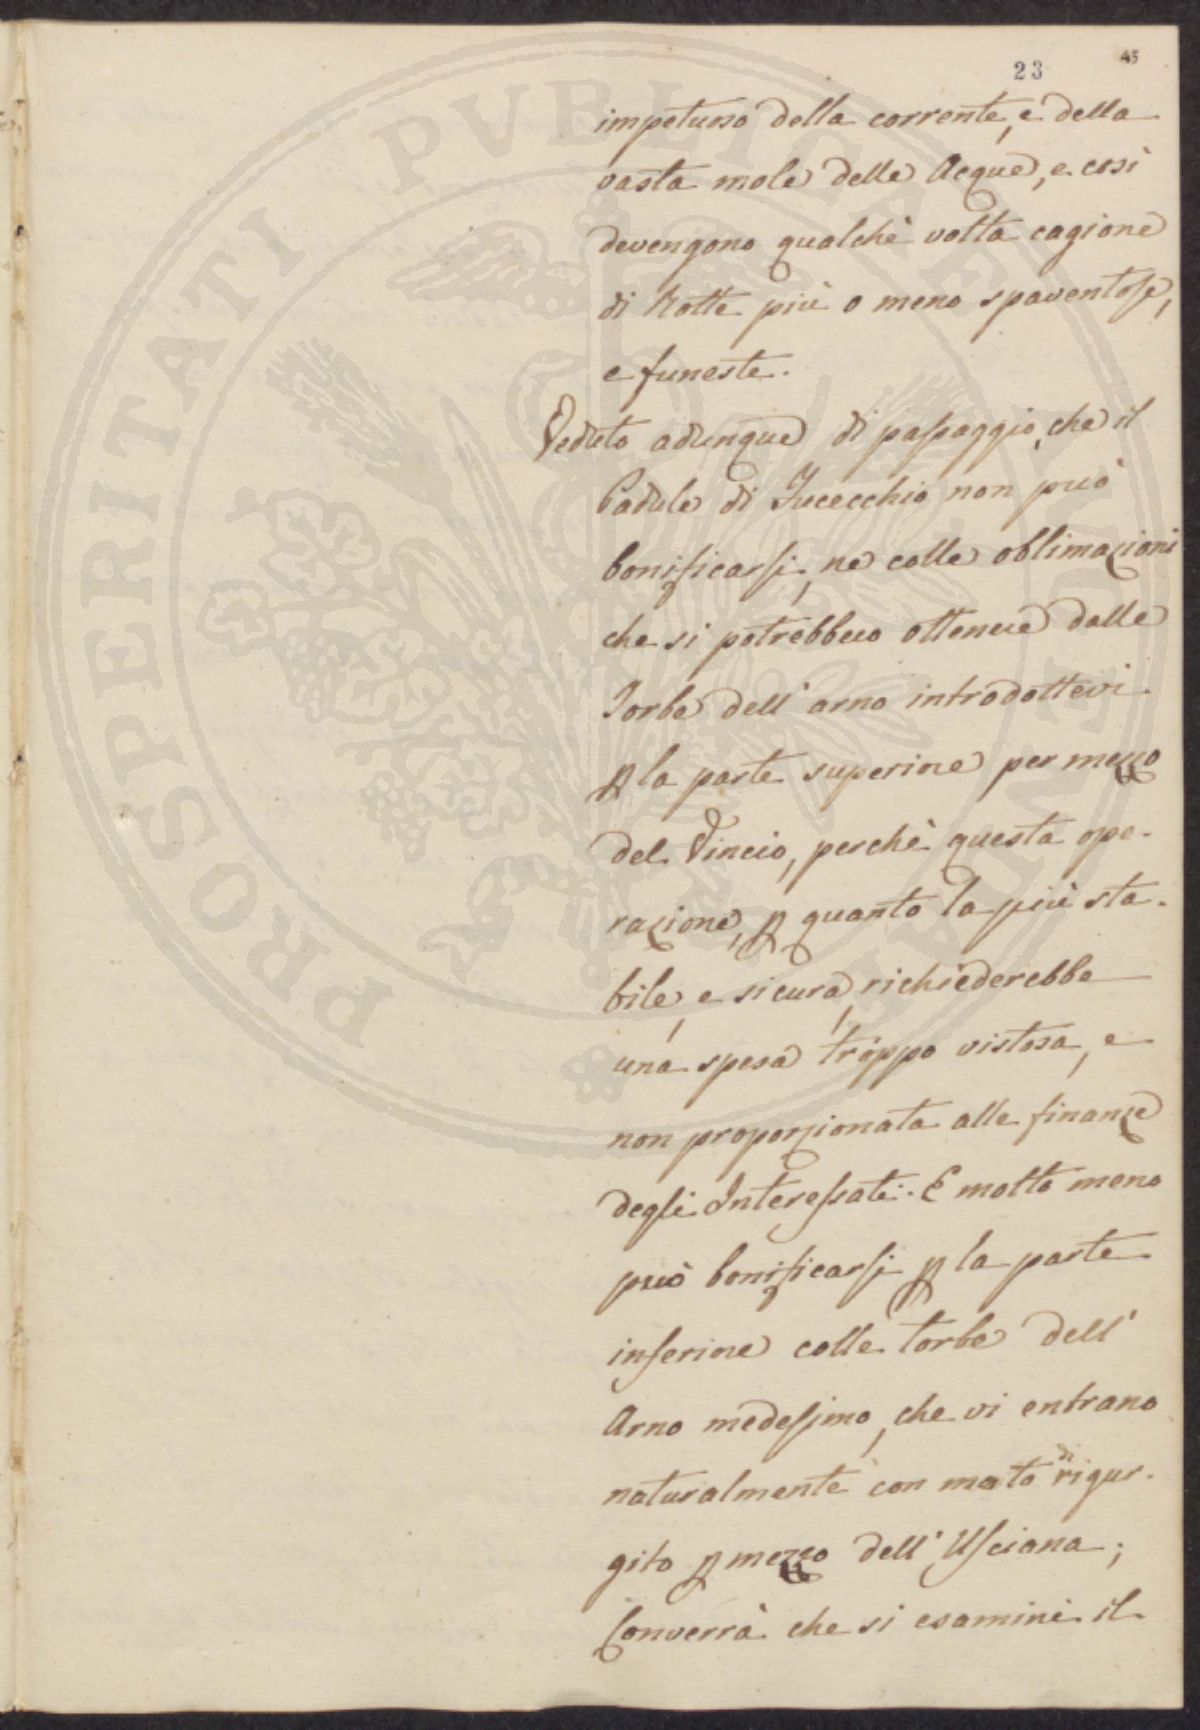 PROSPERITATI PVBLICAE AVGENDAE
23
45
impetuoso della corrente, e della
vasta mole delle Acque, e così
devengono qualchè volta cagione
di Rotte più o meno spaventose,
e funeste.
Veduto adunque di passaggio, che il
Padule di Fucecchio non può
bonificarsi, ne colle oblimazioni
che si potrebbero ottenere dalle
Torbe dell' arno introdottevi
p la parte superiore per mezzo
del Vincio, perchè questa ope-
razione, p quanto la più sta-
bile, e sicura, richiederebbe
una spesa troppo vistosa, e
non proporzionata alle finanze
degli Interessati. E molto meno
può bonificarsi p la parte
inferiore colle torbe dell'
Arno medesimo, che vi entrano
naturalmente con moto di rigur-
gito p mezzo dell' Usciana;
Converrà che si esamini il